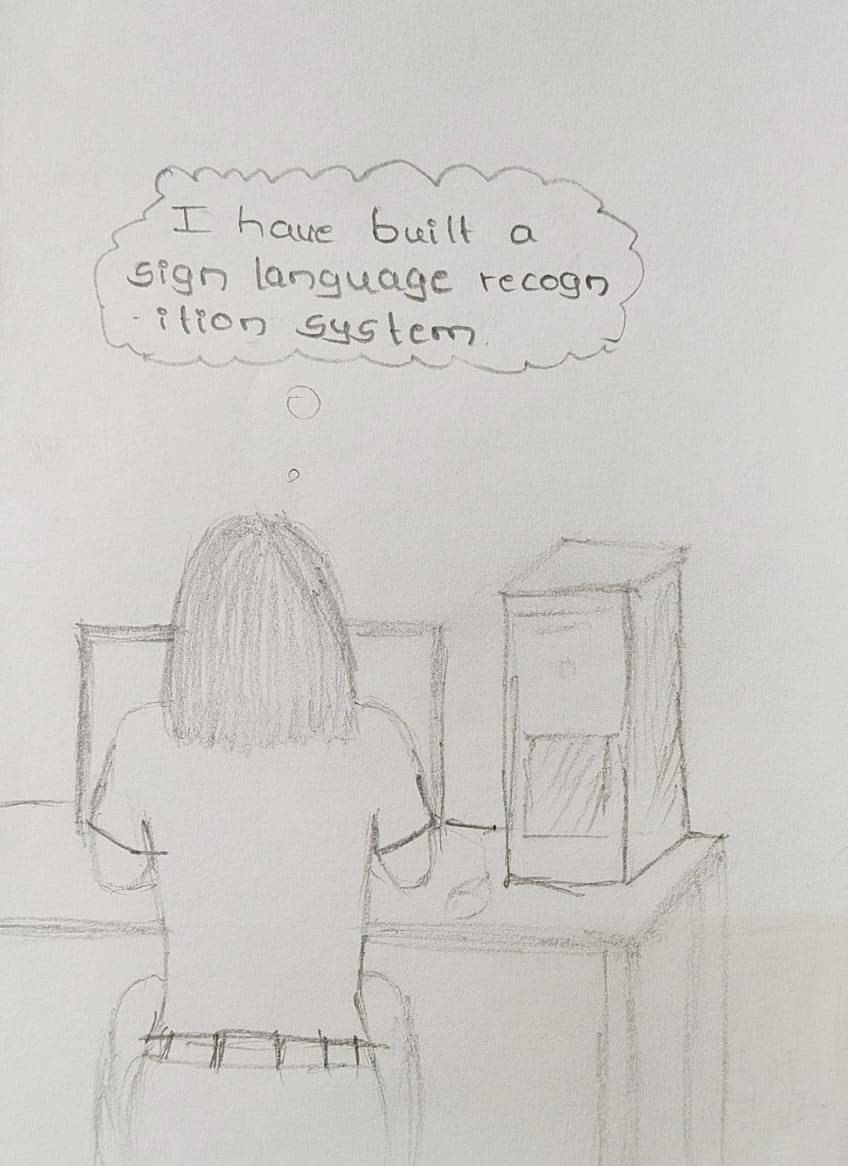 I have built a
sign language recogn
-ition system.